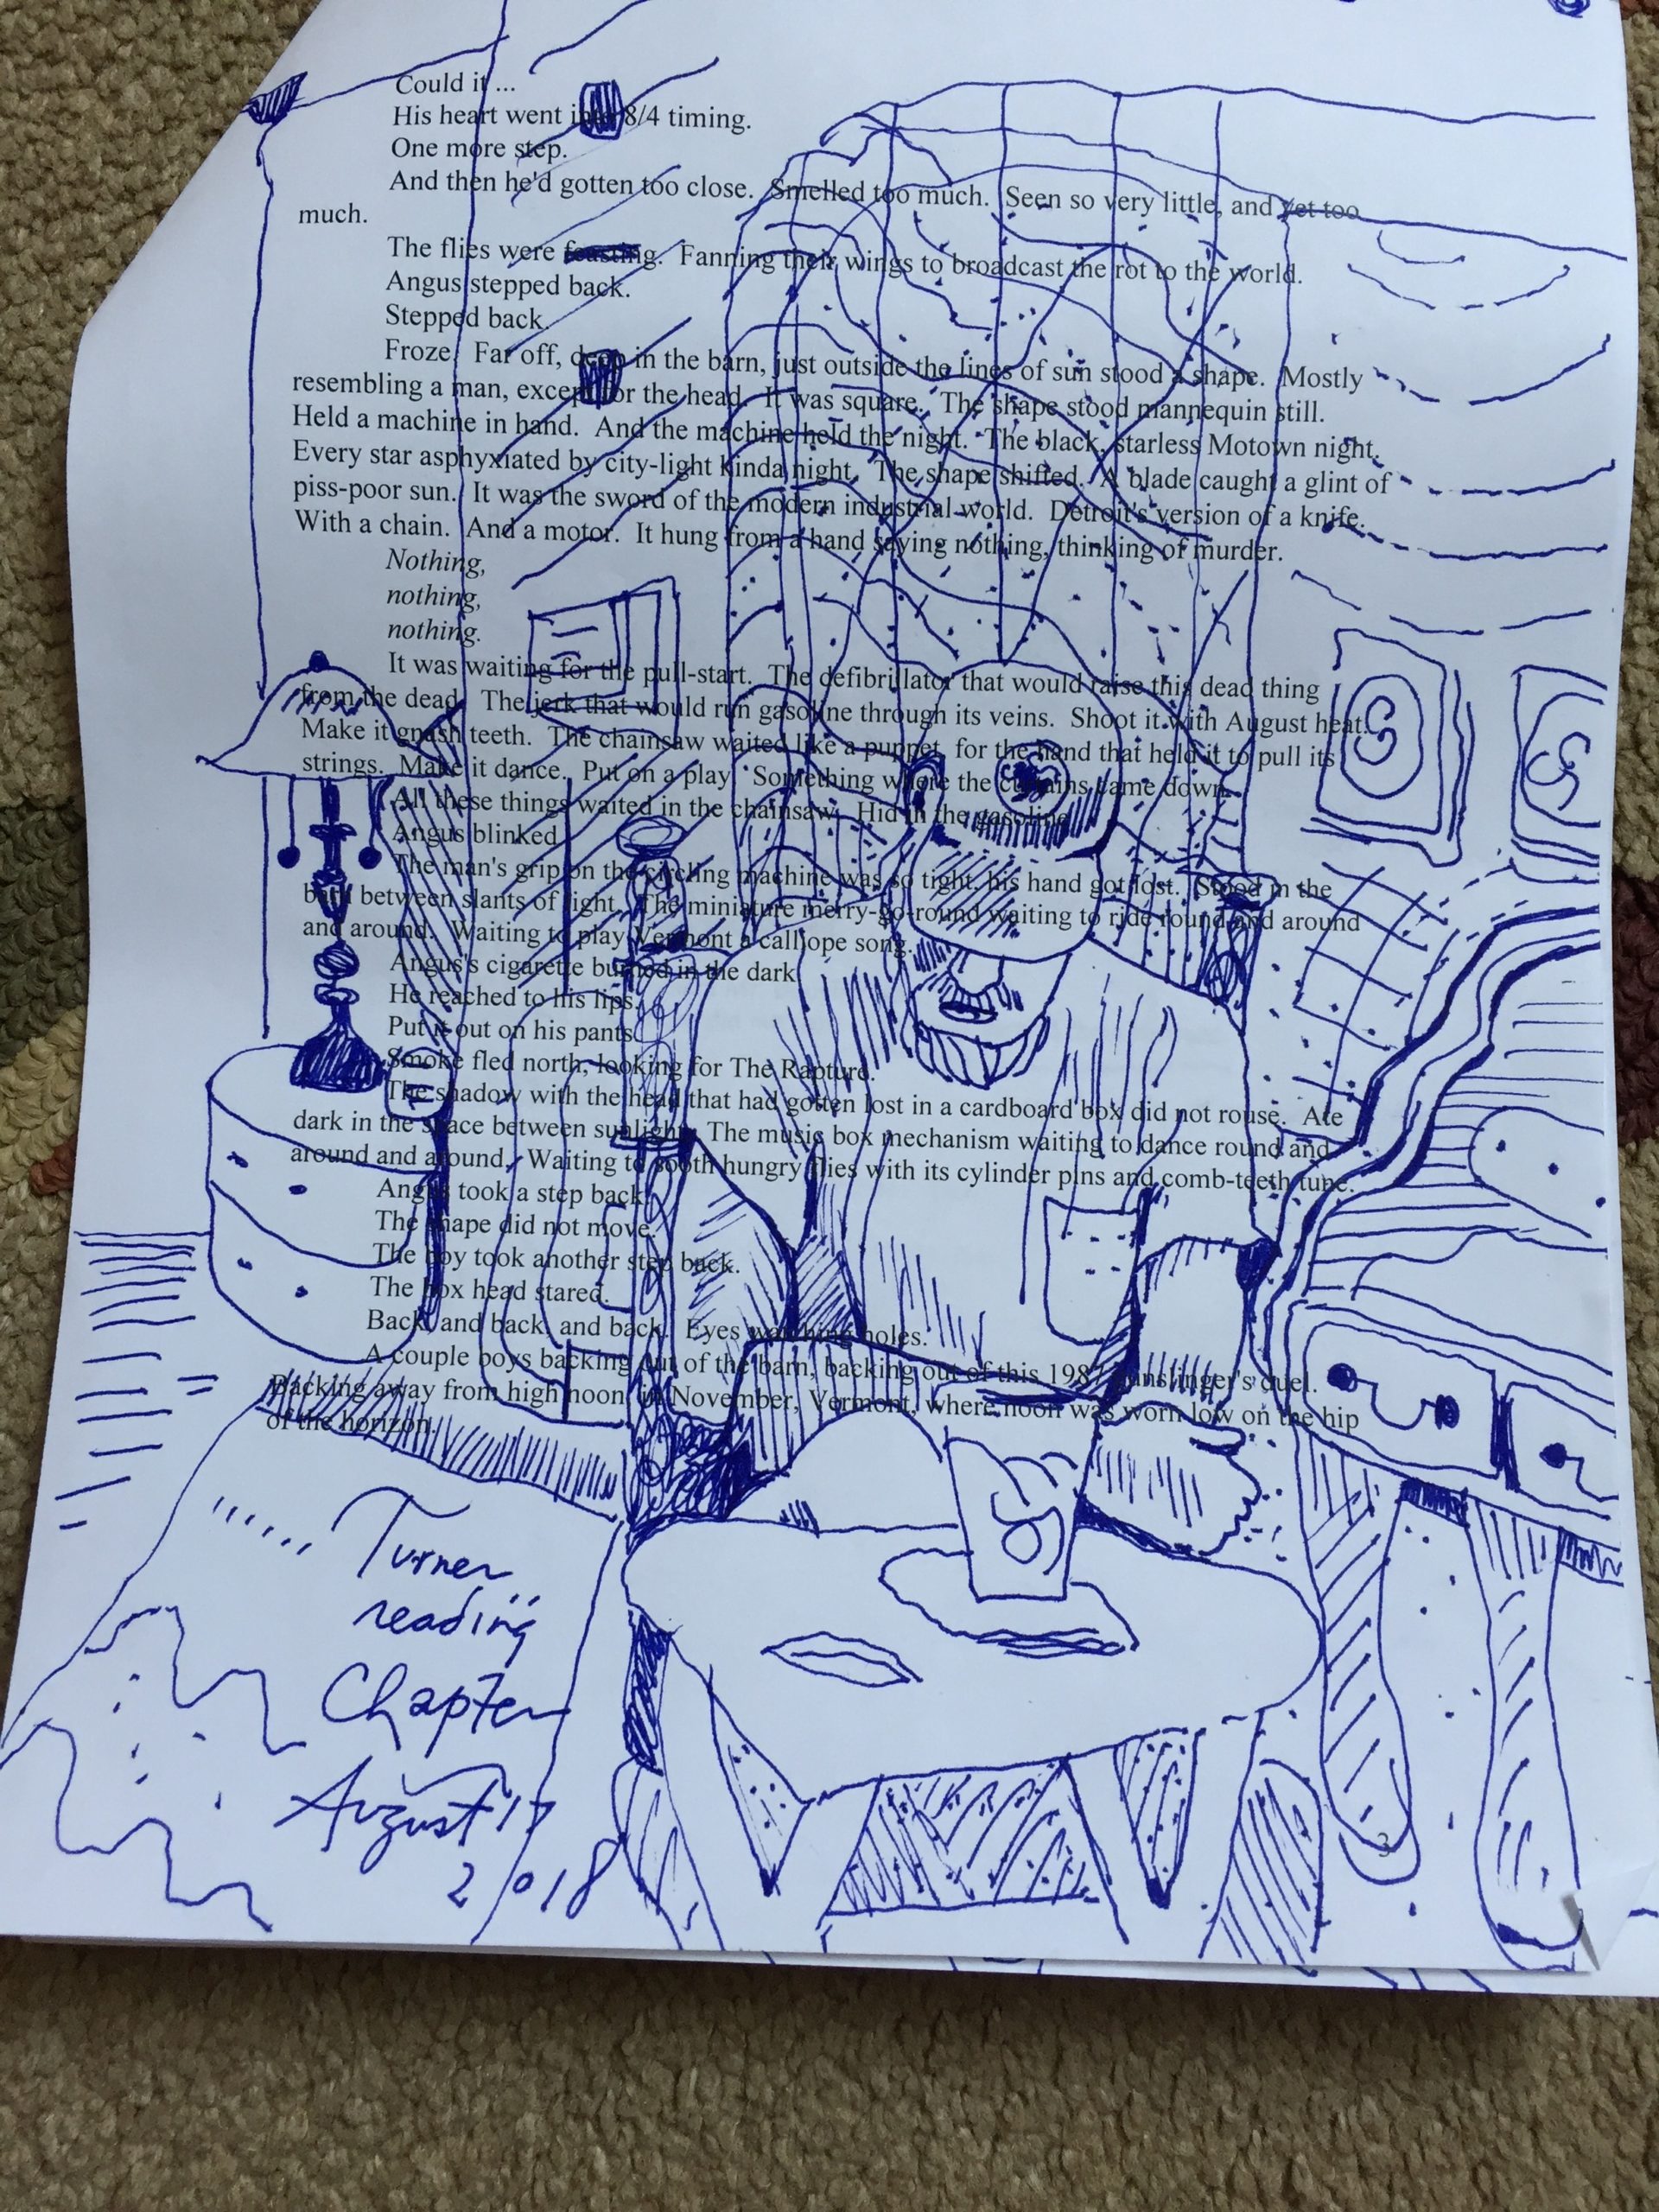 Could it ...
His heart went into 8/4 timing.
One more step.
And then he'd gotten too close. Smelled too much. Seen so very little, and yet too
much.
The flies were feasting. Fanning their wings to broadcast the rot to the world.
Angus stepped back.
Stepped back.
Froze. Far off, deep in the barn, just outside the lines of sun stood a shape. Mostly
resembling a man, except for the head. It was square. The shape stood mannequin still.
Held a machine in hand. And the machine held the night. The black, starless Motown night.
Every star asphyxiated by city-light kinda night. The shape shifted. A blade caught a glint of
piss-poor sun. It was the sword of the modern industrial world. Detroit's version of a knife.
With a chain. And a motor. It hung from a hand saying nothing, thinking of murder.
Nothing,
nothing,
nothing.
It was waiting for the pull-start. The defibrillator that would raise this dead thing
from the dead. The jerk that would run gasoline through its veins. Shoot it with August heat.
Make it gnash teeth. The chainsaw waited like a puppet, for the hand that held it to pull its
strings. Make it dance. Put on a play. Something where the curtains came down.
All these things waited in the chainsaw. Hid in the gasoline.
Angus blinked.
The man's grip on the circling machine was so tight, his hand got lost. Stood in the
barn between slants of light. The miniature merry-go-round waiting to ride round and around
and around. Waiting to play Vermont a calliope song.
Angus's cigarette burned in the dark.
He reached to his lips.
Put it out on his pants.
Smoke fled north, looking for The Rapture.
The shadow with the head that had gotten lost in a cardboard box did not rouse. Ate
dark in the space between sunlight. The music box mechanism waiting to dance round and
around and around. Waiting to sooth hungry flies with its cylinder pins and comb-teeth tune.
Angus took a step back.
The shape did not move.
The boy took another step back.
The box head stared.
Back, and back, and back. Eyes watching holes.
A couple boys backing out of the barn, backing out of this 1987 gunslinger's duel.
Backing away from high noon, in November, Vermont, where noon was worn low on the hip
of the horizon.
Turner
reading
Chapter
August 17
2018
3